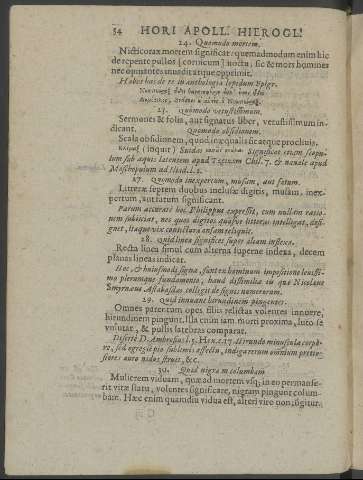 54 HORI APOLL. HIEROGL.
24. Quomodo mortem.
Nicticorax mortem significat: quemadmodum enim hic
de repente pullos [cornicum] noctu, sic & mors homines
nec opinātes inuadit atque opprimit.
Habes hac de re in anthologia lepidum Epigr.
25. Quomodo vetustissimum.
Sermones & folia, aut signatus liber, vetustissimum in-
dicant. Quomodo obsidionem.
Scala obsidionem, quod inæqualis sit atque procliuis.
(inquit) Suidas significat etiam scopu-
lum sub aquis latentem apud Tzetzem Chil. 7. & nauale apud
27. Quomodo inexpertum, musam, aut fatum.
Litteræ septem duobus inclusæ digitis, musam, inex-
pertum, aut fatum significant.
Parum accuratè hoc Philippus expressit, cum nullam ratio-
nem subiiciat, nec quos digitos quasve litteras intelligat, desi-
gnet, itaque vix coniectura assequaris.
28. Quid linea significet super aliam inflexa.
Recta linea simul cum alterna superne inflexa, decem
planas lineas indicat.
Hec, & huiusmodi signa, sunt ex hominum impositione leuissi-
mo plerumque fundamento, haud dissimilia iis quæ Nicolaus
Smyrnæus Artabasdas collegit de signis numerorum.
29. Quid innuant hirundinem pingentes.
Omnes parentum opes filiis relictas volentes innuere,
hirundinem pingunt. Illa enim iam morti proxima, luto se
& pullis latebras comparat.
Disertè D. Ambrosius l. 5. Hirundo minuscula corpo-
re, sed egregiè pio sublimis affectu, indiga rerum omnium pretio-
siores auro nidos struit, &c.
30. Quid nigram columbam.
Mulierem viduam, quæ ad mortem vsq; in eo permanse-
rit vitæ statu, volentes significare, nigram pingunt colum-
bam. Hæc enim quamdiu vidua est, alteri viro non iūgitur.